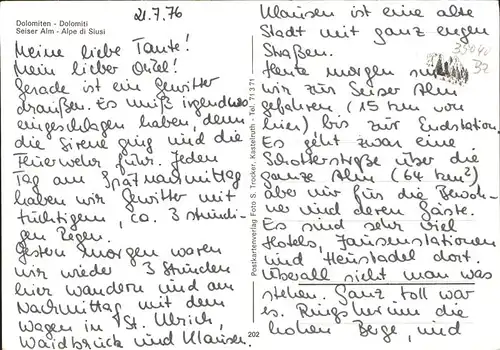 Dolomiten - Dolomiti
Seiser Alm - Alpe di Siusi
21.7.76
Meine liebe Tante!
Mein lieber Onkel!
Gerade ist ein Gewitter
draußen. Es muß irgendwo
eingeschlagen haben, denn
die Sirene ging und die
Feuerwehr fuhr. Jeden
Tag am Spätnachmittag
haben wir Gewitter mit
tüchtigem, ca. 3 stündi-
gen Regen.
Gestern morgen waren
wir wieder 3 Stunden
hier wandern und am
Nachmittag mit dem
Wagen in St. Ulrich,
Waidbruck und Klausen.
Postkartenverlag Foto S. Trocker, Kastelruth - Tel. 71 3 71
202
Klausen ist eine alte
Stadt mit ganz engen
Straßen.
Heute morgen sind
wir zur Seiser Alm
gefahren (15 km von
hier) bis zur Endstation.
Es geht zwar eine
Schotterstraße über die
ganze Alm (64 km²)
aber nur für die Bewoh-
ner und deren Gäste.
Es sind sehr viel
Hotels, Jausenstationen
und Heustadel dort.
Überall sieht man was
stehen. Ganz toll war
es. Ringsherum die
hohen Berge, und